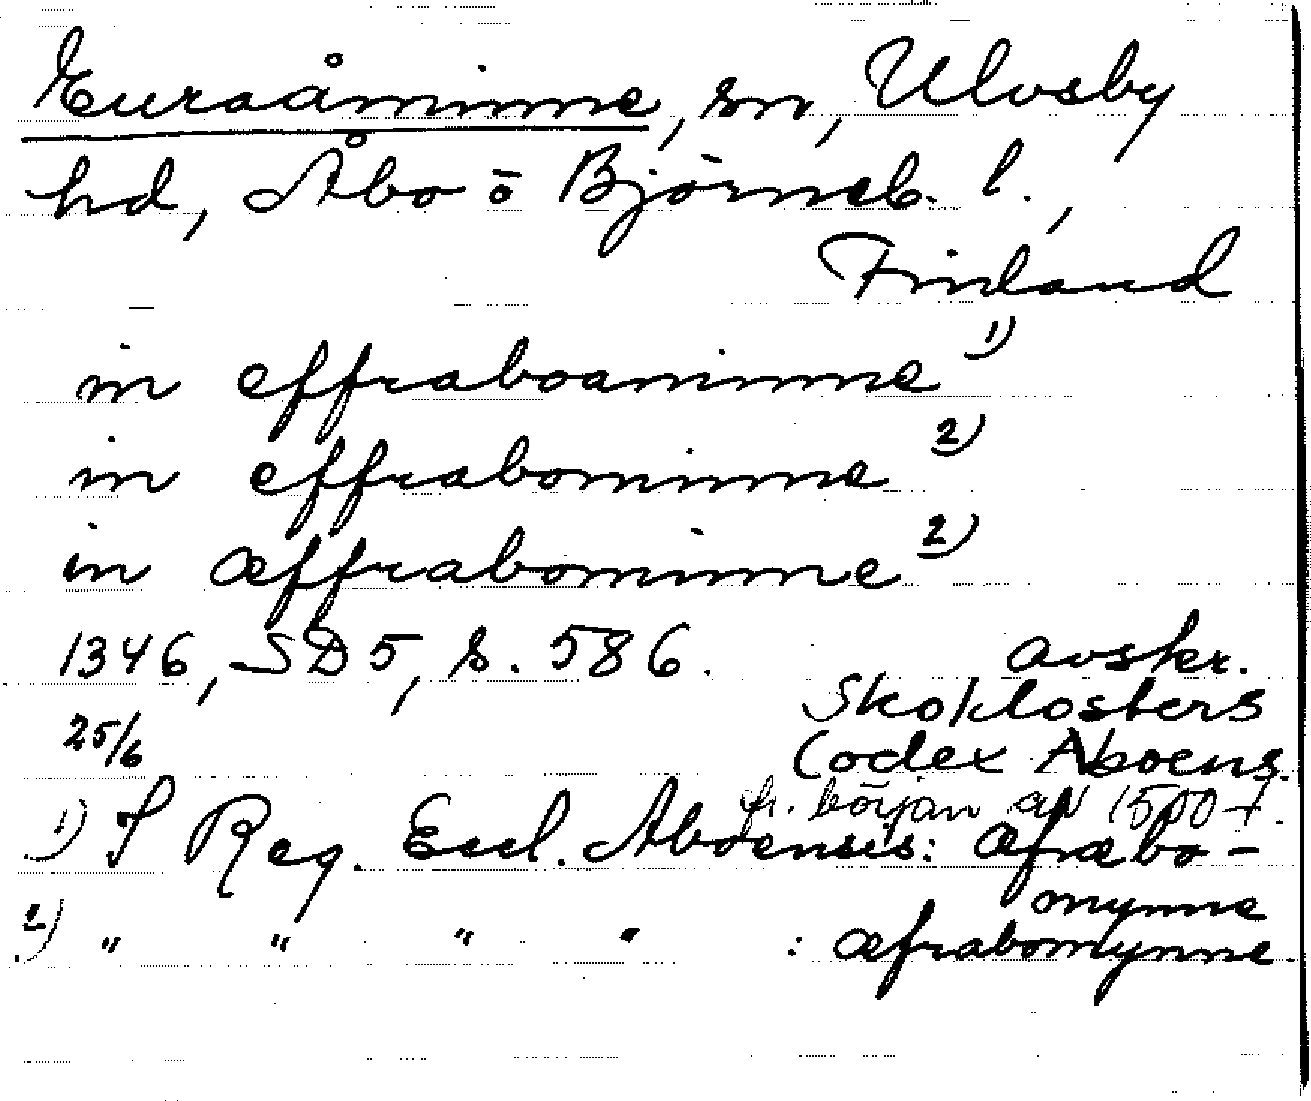 Euraåminne, sn, Ulvsby
hd, Åbo o Björneb. l.,
Finland
in effraboaminne 1)
in effrabominne 2)
in æffrabominne 2)
1346, SD 5, s. 586.
25/6
avskr.
Skoklosters
Codex Aboens.
fr. början av 1500-t.
1) I Reg. Eccl. Aboensis: æfræbo-
omynne
2) " " " " : æfrabomynne.